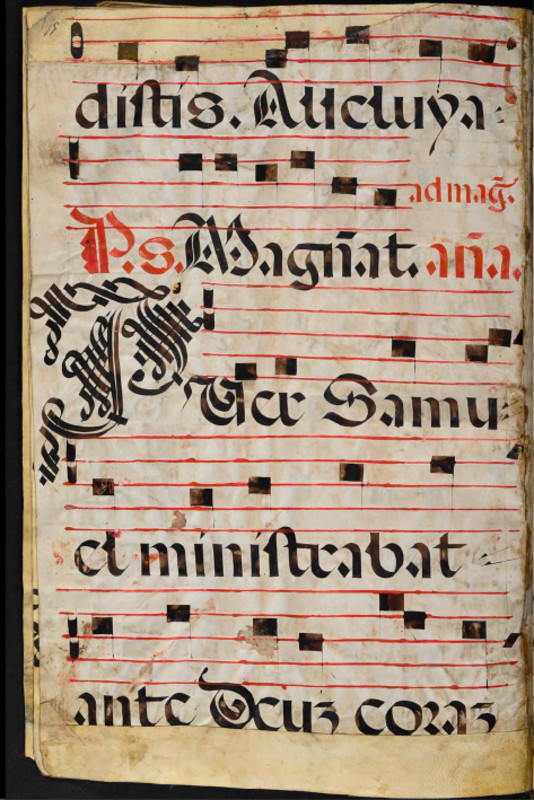 distis. Alleluya:
ad mag̃.
P.s. Magñat. aña.
PUer Samu:
el ministrabat
ante Deuz coraz